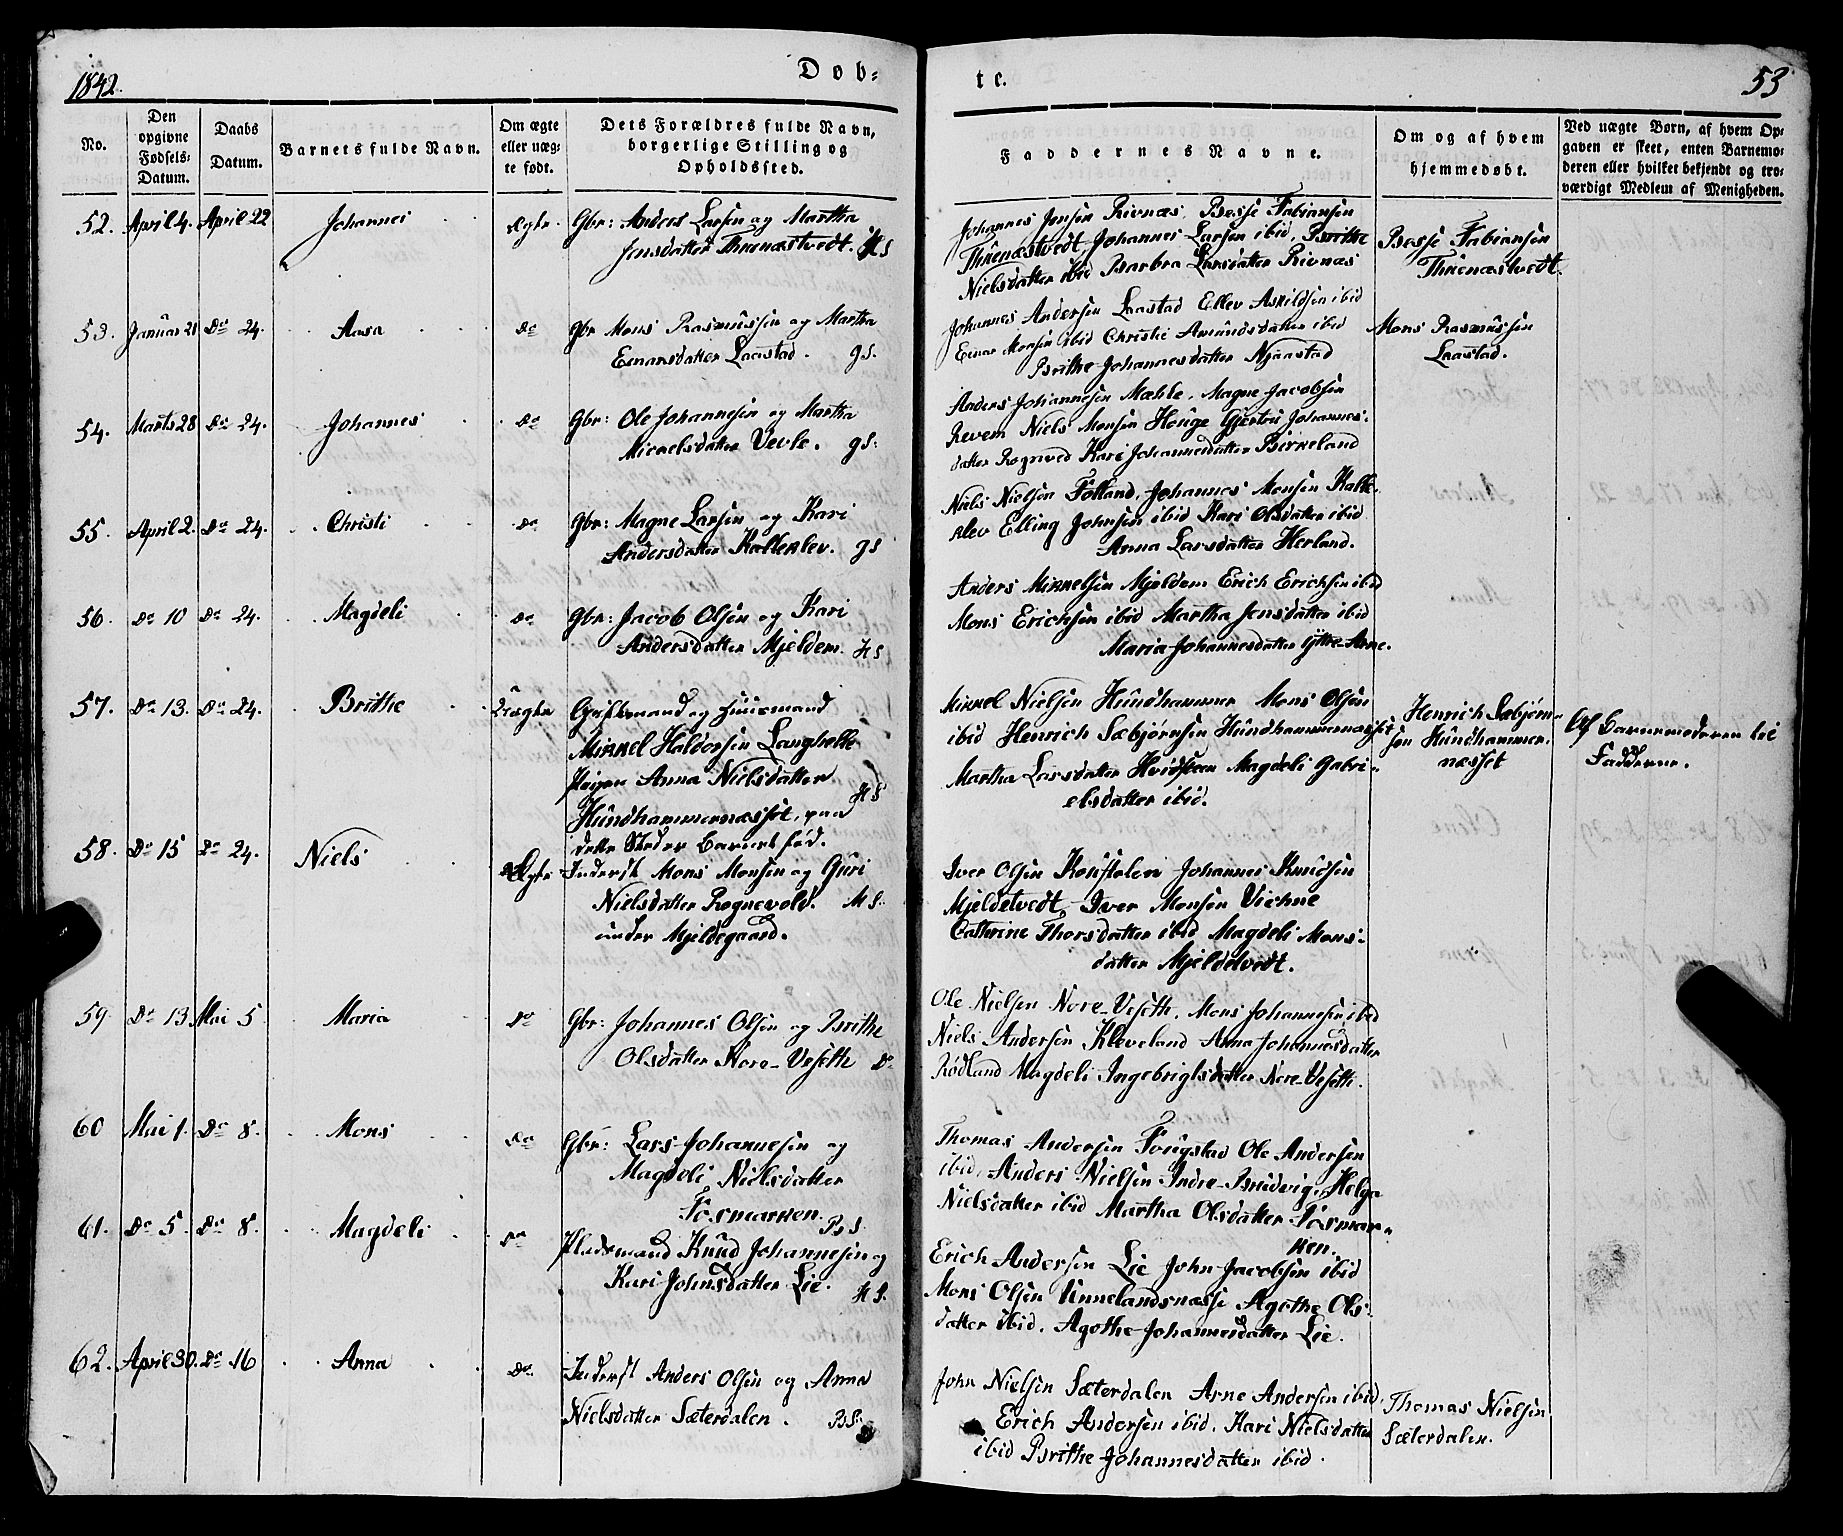 1842.
Dob-
te.
53
No.
Den
opgivne
Fødsels-
Datum.
Daabs
Datum.
Barnets fulde Navn.
Om ægte
eller uæg-
te født.
Dets Forældres fulde Navn,
borgerlige Stilling og
Opholdssted.
Faddernes Navne.
Om og af hvem
hjemmedøbt.
Ved uægte Børn, af hvem Op-
gaven er skeet, enten Barnemo-
deren eller hvilket bekjendt og tro-
værdigt Medlem af Menigheden.
52. April 4. April 22 Johannes Ægte Gbr: Anders Larsen og Martha
Jensdatter Thunæstvedt. HS
Johannes Jensen Rivnæs, Besse Fabiansen
Thunæstvedt, Johannes Larsen ibid, Brithe
Nielsdatter ibid Barbra Larsdatter Rivnæs
Besse Fabiansen
Thunæstvedt.
53. Januar 21 Do 24. Aasa Do Gbr Mons Rasmussen og Martha
Einarsdatter Laastad. gS.
Johannes Andersen Laastad Ellev Askildsen ibid
Einar Monsen ibid Christie Amundsdatter ibid
Brithe Johannesdatter Njaastad
Mons Rasmussen
Laastad.
54. Marts 28 Do 24. Johannes Do Gbr: Ole Johannesen og Martha
Micaelsdatter Vevle. gS.
Anders Johannesen Mæhle, Magne Jacobsen
Revem Niels Monsen Houge Gjertrui Johannes-
datter Rognved Kari Johannesdatter Birkeland
55. April 2. Do 24. Christi Do Gbr: Magne Larsen og Kari
Andersdatter Kalleklev. gS
Niels Nielsen Fotland, Johannes Monsen Kalle-
klev Elling Johnsen ibid Kari Olsdatter ibid
Anna Larsdatter Herland.
56. Do 10 Do 24. Magdeli Do Gbr: Jacob Olsen og Kari
Andersdatter Mjeldem. HS
Anders Mikkelsen Mjeldem Erich Erichsen ibid
Mons Erichsen ibid Martha Jensdatter ibid
Maria Johannesdatter Yttre-Arne.
57. Do 13. Do 24. Brithe Uægte Giftemand og Huusmand
Mikkel Haldorsen Langhelle
Pigen Anna Nielsdatter
Hundhammernæsset, paa
dette Sted er Barnet fød. HS
Mikkel Nielsen Hundhammer Mons Olsen
ibid Henrich Sæbjørnsen Hundhammernæsset
Martha Larsdatter Hvidsteen Magdeli Gabri-
elsdatter ibid.
Henrich Sæbjørn-
sen Hundhammer-
næsset
Af Barnemoderen til
Fadderne.
58. Do 15 Do 24. Niels Ægte Inderst Mons Monsen og Guri
Nielsdatter Rognevold. HS.
under Mjeldegaard.
Iver Olsen Johannes Knudsen
Mjeldetvedt, Iver Monsen Viehne
Cathrine Thorsdatter ibid Magdeli Mons-
datter Mjeldetvedt.
59. Do 13 Mai 5 Maria Do Gbr: Johannes Olsen og Brithe
Olsdatter Nore-Veseth Do
Ole Nielsen Nore-Veseth, Mons Johannesen ibid
Niels Andersen Kleveland Anna Johannesdatter
Rødland Magdeli Ingebrigtsdatter Nore-Veseth.
60 Mai 1. Do 8. Mons Do Gbr: Lars Johannesen og
Magdeli Nielsdatter
Fosmarken. BS.
Thomas Andersen Fougstad Ole Andersen
ibid, Anders Nielsen Indre-Brudvig, Helga
Nielsdatter ibid Martha Olsdatter Fosmar-
ken.
61. Do 5 Do 8. Magdeli Do Pladsmand Knud Johannesen og
Kari Johnsdatter Lie. HS.
Erich Andersen Lie John Jacobsen ibid
Mons Olsen Unnelandsnæsse Agothe Ols-
datter ibid. Agothe Johannesdatter Lie.
62. April 30. Do 16 Anna Do Inderst Anders Olsen og Anna
Nielsdatter Sæterdalen. BS.
John Nielsen Sæterdalen Arne Andersen ibid
Erich Andersen ibid. Kari Nielsdatter
ibid Brithe Johannesdatter ibid.
Thomas Nielsen
Sæterdalen.